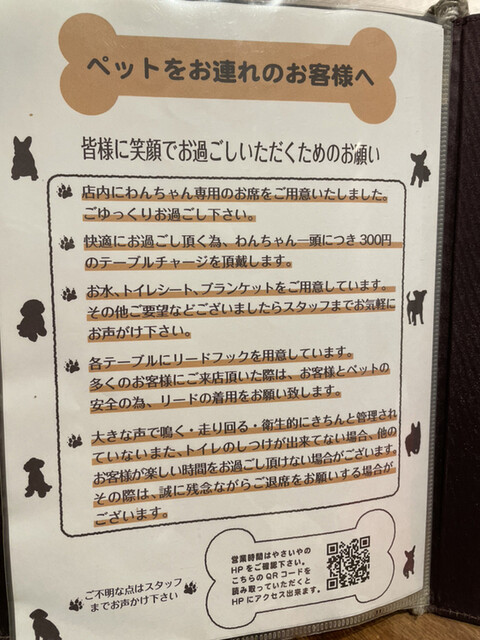 ペットをお連れのお客様へ
皆様に笑顔でお過ごしいただくためのお願い
店内にわんちゃん専用のお席をご用意いたしました。
ごゆっくりお過ごし下さい。
快適にお過ごし頂く為、わんちゃん一頭につき300円
のテーブルチャージを頂戴します。
お水、トイレシート、ブランケットをご用意しています。
その他ご要望などございましたらスタッフまでお気軽に
お声がけ下さい。
各テーブルにリードフックを用意しています。
多くのお客様にご来店頂いた際は、お客様とペットの
安全の為、リードの着用をお願い致します。
大きな声で鳴く・走り回る・衛生的にきちんと管理され
ていないまた、トイレのしつけが出来てない場合、他の
お客様が楽しい時間をお過ごし頂けない場合がございます。
その際は、誠に残念ながらご退席をお願いする場合が
ございます。
営業時間はやさいやの
HPをご確認下さい。
こちらのQRコードを
読み取っていただくと
HPにアクセス出来ます。
ご不明な点はスタッフ
までお声かけ下さい